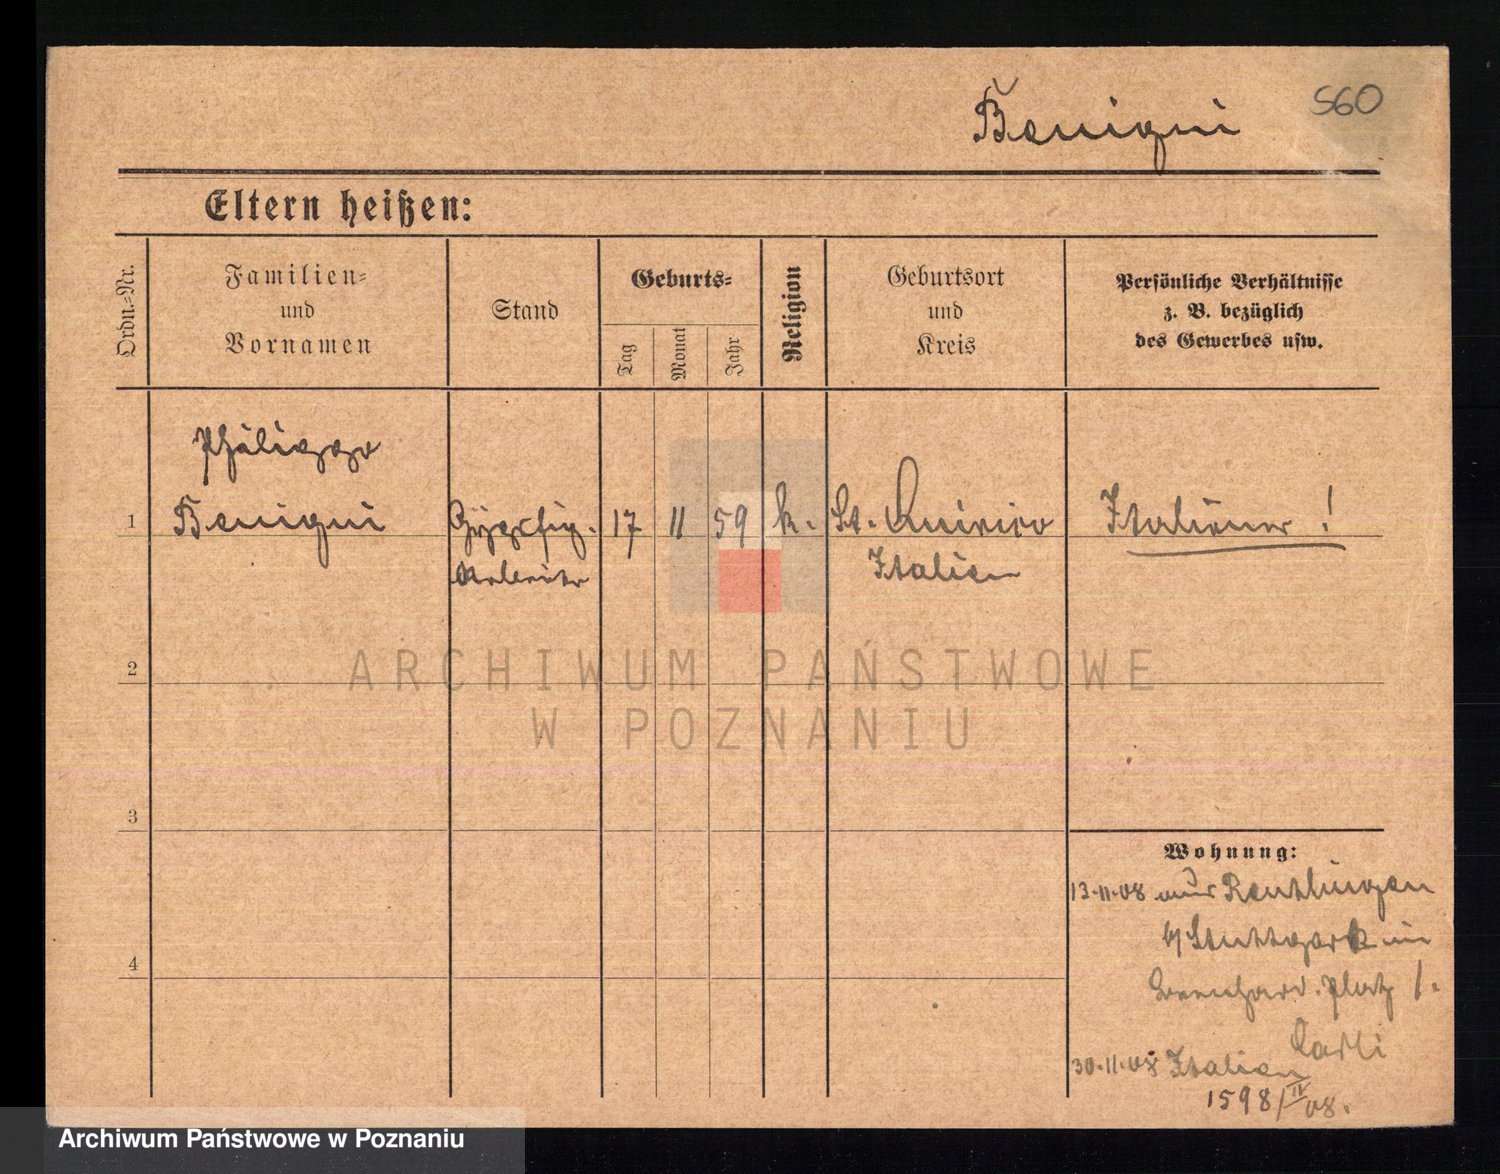 S60
Benigni
Eltern heißen:
Ordn.-Nr.
Familien-
und
Vornamen
Stand
Geburts-
Tag
Monat
Jahr
Religion
Geburtsort
und
Kreis
Persönliche Verhältnisse
z. B. bezüglich
des Gewerbes usw.
1
Benigni
17 11 59 k. St. Quirico
Italiener!
Arbeiter
Italien
2
ARCHIWUM PAŃSTWOWE
W POZNANIU
3
Wohnung:
13.11.08 aus Reutlingen
b/ Stuttgart in
Leonhard. Platz 1.
4
30.11.08 Italien
1598/IV 08.
Archiwum Państwowe w Poznaniu